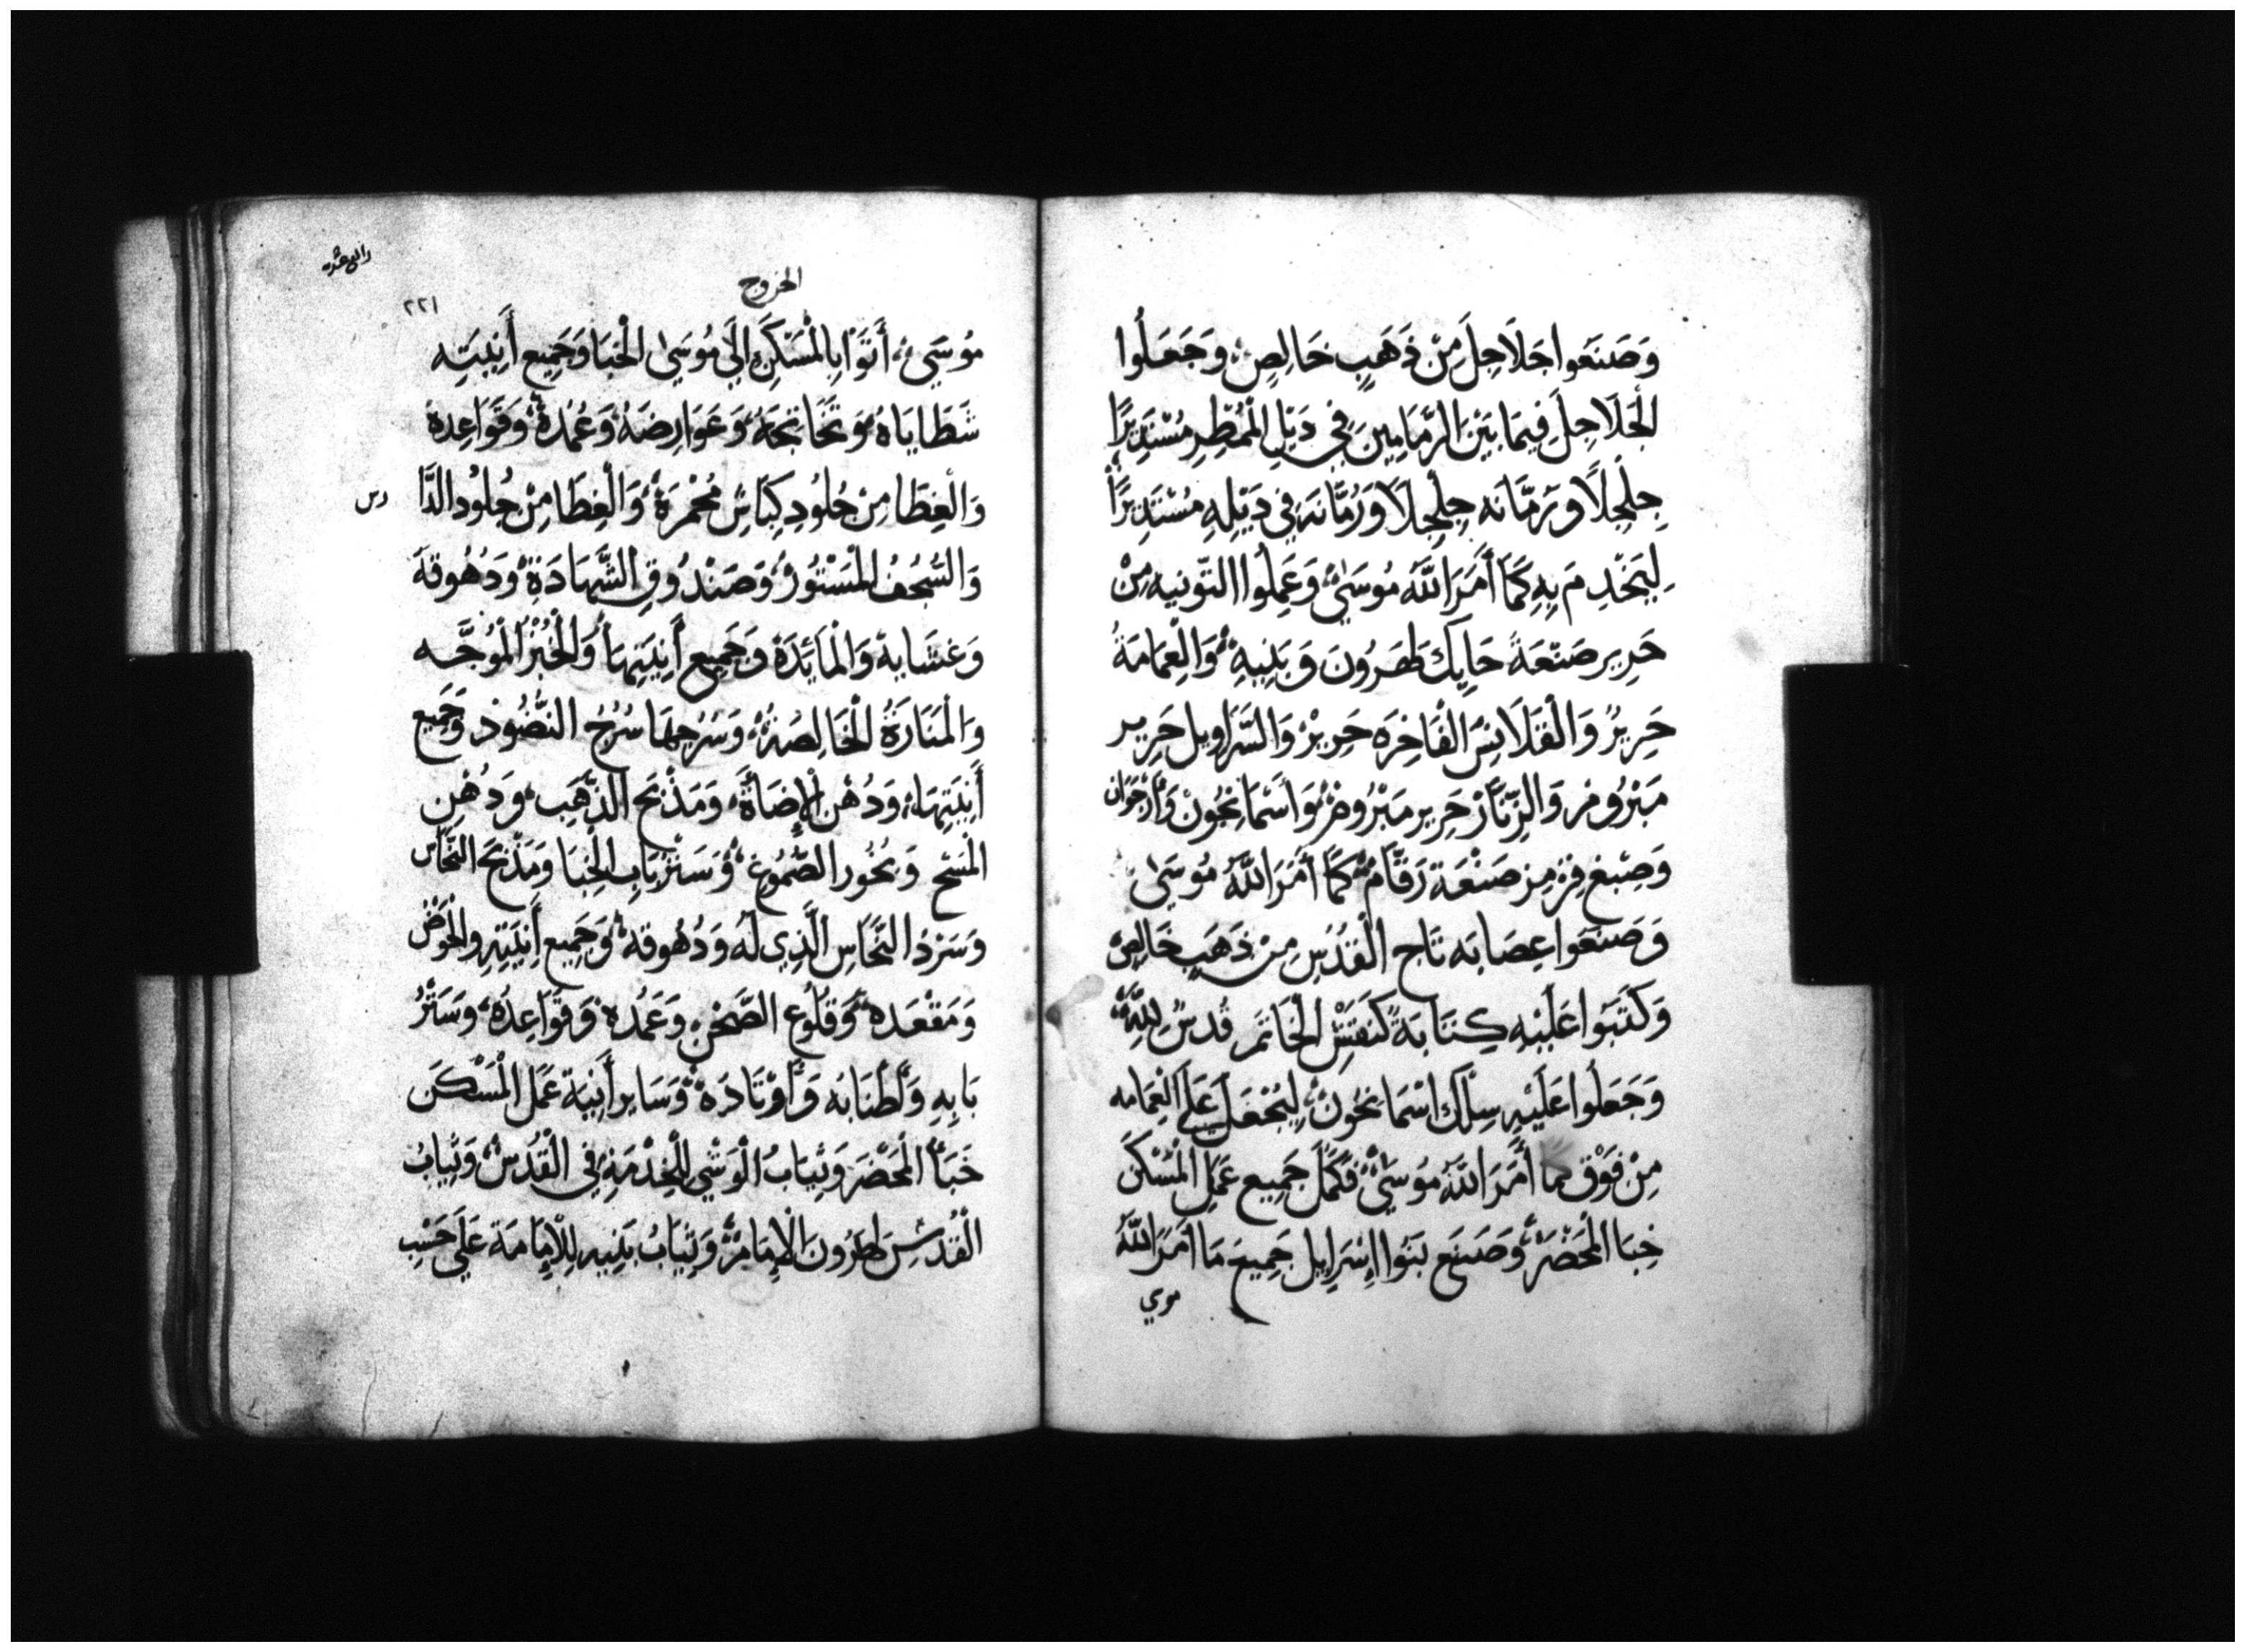 وَصَنَعُوا جَلَاجِلَ مِنْ ذَهَبٍ خَالِصٍ وَجَعَلُوا
الْجَلَاجِلَ فِيمَا بَيْنَ الرَّمَامِينَ فِي ذَيْلِ الْمُمَطَّرِ مُسْتَدِيرًا
جِلْجِلًا وَرُمَّانَه جِلْجِلًا وَرُمَّانَه فِي ذَيْلِهِ مُسْتَدِيرًا
لِيَخْدِمَ بِهِ كَمَا أَمَرَ اللَّهُ مُوسَىٰ وَعَمِلُوا التّونيه مِنْ
حَرِير صَنْعَةً حَايِك لَهَرُونَ وَبَنِيهِ وَالْعِمَامَةُ
حَرِيرُ وَالْقَلَانِسَ الْفَاخِرَه حَرِيرْ وَالسَّرَاوِيل حَرِير
مَبْرُومْ وَالزِّنَّارْ حَرِير مَبْرُومْ وَاسْمَانجُونْ وَارْجَوَان
وَصِبْغ قِرْمِز صَنْعَة رَقَّامْ كَمَا أَمَرَ اللَّهُ مُوسَىٰ
وَصَنَعُوا عِصَابَه تَاج الْقُدْسِ مِنْ ذَهَبٍ خَالِصْ
وَكَتَبُوا عَلَيْهِ كِتَابَةً كَنَقْشِ الْخَاتَمِ قُدسُ لِلَّهِ
وَجَعَلُوا عَلَيْهِ سِلْك اسْمَانجُونْ لِيُجْعَلَ عَلَى الْعِمَامه
مِنْ فَوْق كما أَمَرَ اللَّهُ مُوسَىٰ فَكَمُلَ جَمِيع عَمَلِ الْمَسْكَن
خِبَا الْمَحْضَرْ وَصَنَع بَنُوا إِسْرَايِيل جَمِيعَ مَا أَمَرَ اللَّهُ
موسي
رابع عشره
الخروج
٢٢١
مُوسَىٰ أَتَوْا بِالْمَسْكِنِ إِلَى مُوسَىٰ الْخِبَا وَجَمِيع أَنِيَتِه
شَظَايَاهُ وَتَخَاتِجَهُ وَعَوَارِضَهُ وَعُمُدَهُ وَقَوَاعِدَهُ
وَالْغِطَا مِنْ جُلُودِ كِبَاشٍ مُحْمَرَةْ وَالْغِطَا مِنْ جُلُودِ الدَّا
رس
وَالسَّجُفُ الْمَسْتُورْ وَصَنْدُوقِ الشَّهَادَةِ وَدُهُوقَهَ
وَغشَايهْ وَالْمَائِدَةْ وَجَمِيع أَنِيَتِهَا وَالْخُبْزُ الْمُوَجَّه
وَالْمَنَارَةُ الْخَالِصَةْ وَسُرُجهَا سُرُجُ النُّضُود وَجَمِيع
أَنِيَتِهَا وَدُهْن الْإِضَاءَةِ وَمَذْبَح الذَّهَبِ وَدُهْنِ
الْمَسْح وَبُخُور الصُّمُوغِ وَسَتْرْ بَابِ الْخِبَا وَمَذْبَح النُّحَاس
وَسَرْدُ النُّحَاسِ الَّذِي لَهُ وَدُهُوقه وَجَمِيع أَنِيَتِهِ وَالْحَوْض
وَمَقْعَده وَقُلُوع الصَّحْن وَعَمُدهْ وَقَوَاعِدُهُ وَسَتْرُ
بَابِهِ وَأَطْنَابَه وَأَوْتَادَهْ وَسَاير أَنِيَة عَمَل الْمَسْكَن
خِبَأْ الْمَحْضَر وَثِيَابُ الْوَشْي لِلْخِدْمَةِ فِي الْقُدْسِ وَثِيَابُ
الْقُدْسِ لِهَرُونَ الْإِمَامْ وَثِيَابُ بَنِيه لِلْإِمَامَة عَلَى حَسْبِ